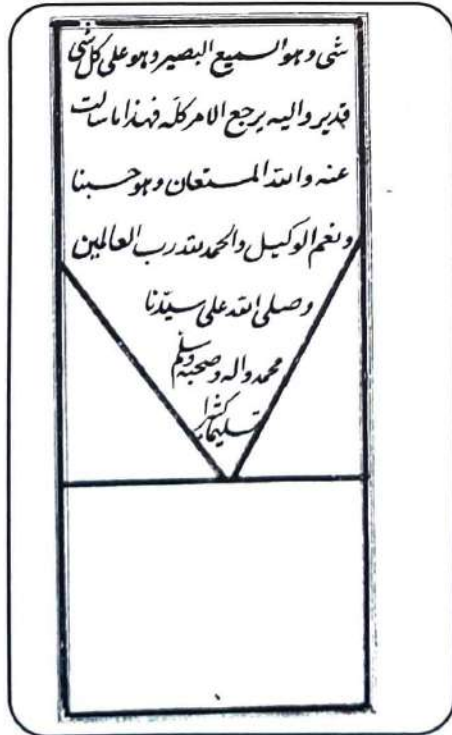 شى وهو السميع البصير وهو على كل شى
قدير واليه يرجع الامر كله فهذا ما سالت
عنه والله المستعان وهو حسبنا
ونعم الوكيل والحمد لله رب العالمين
وصلى الله على سيدنا
محمد واله وصحبه وسلم
تسليما كثيرا